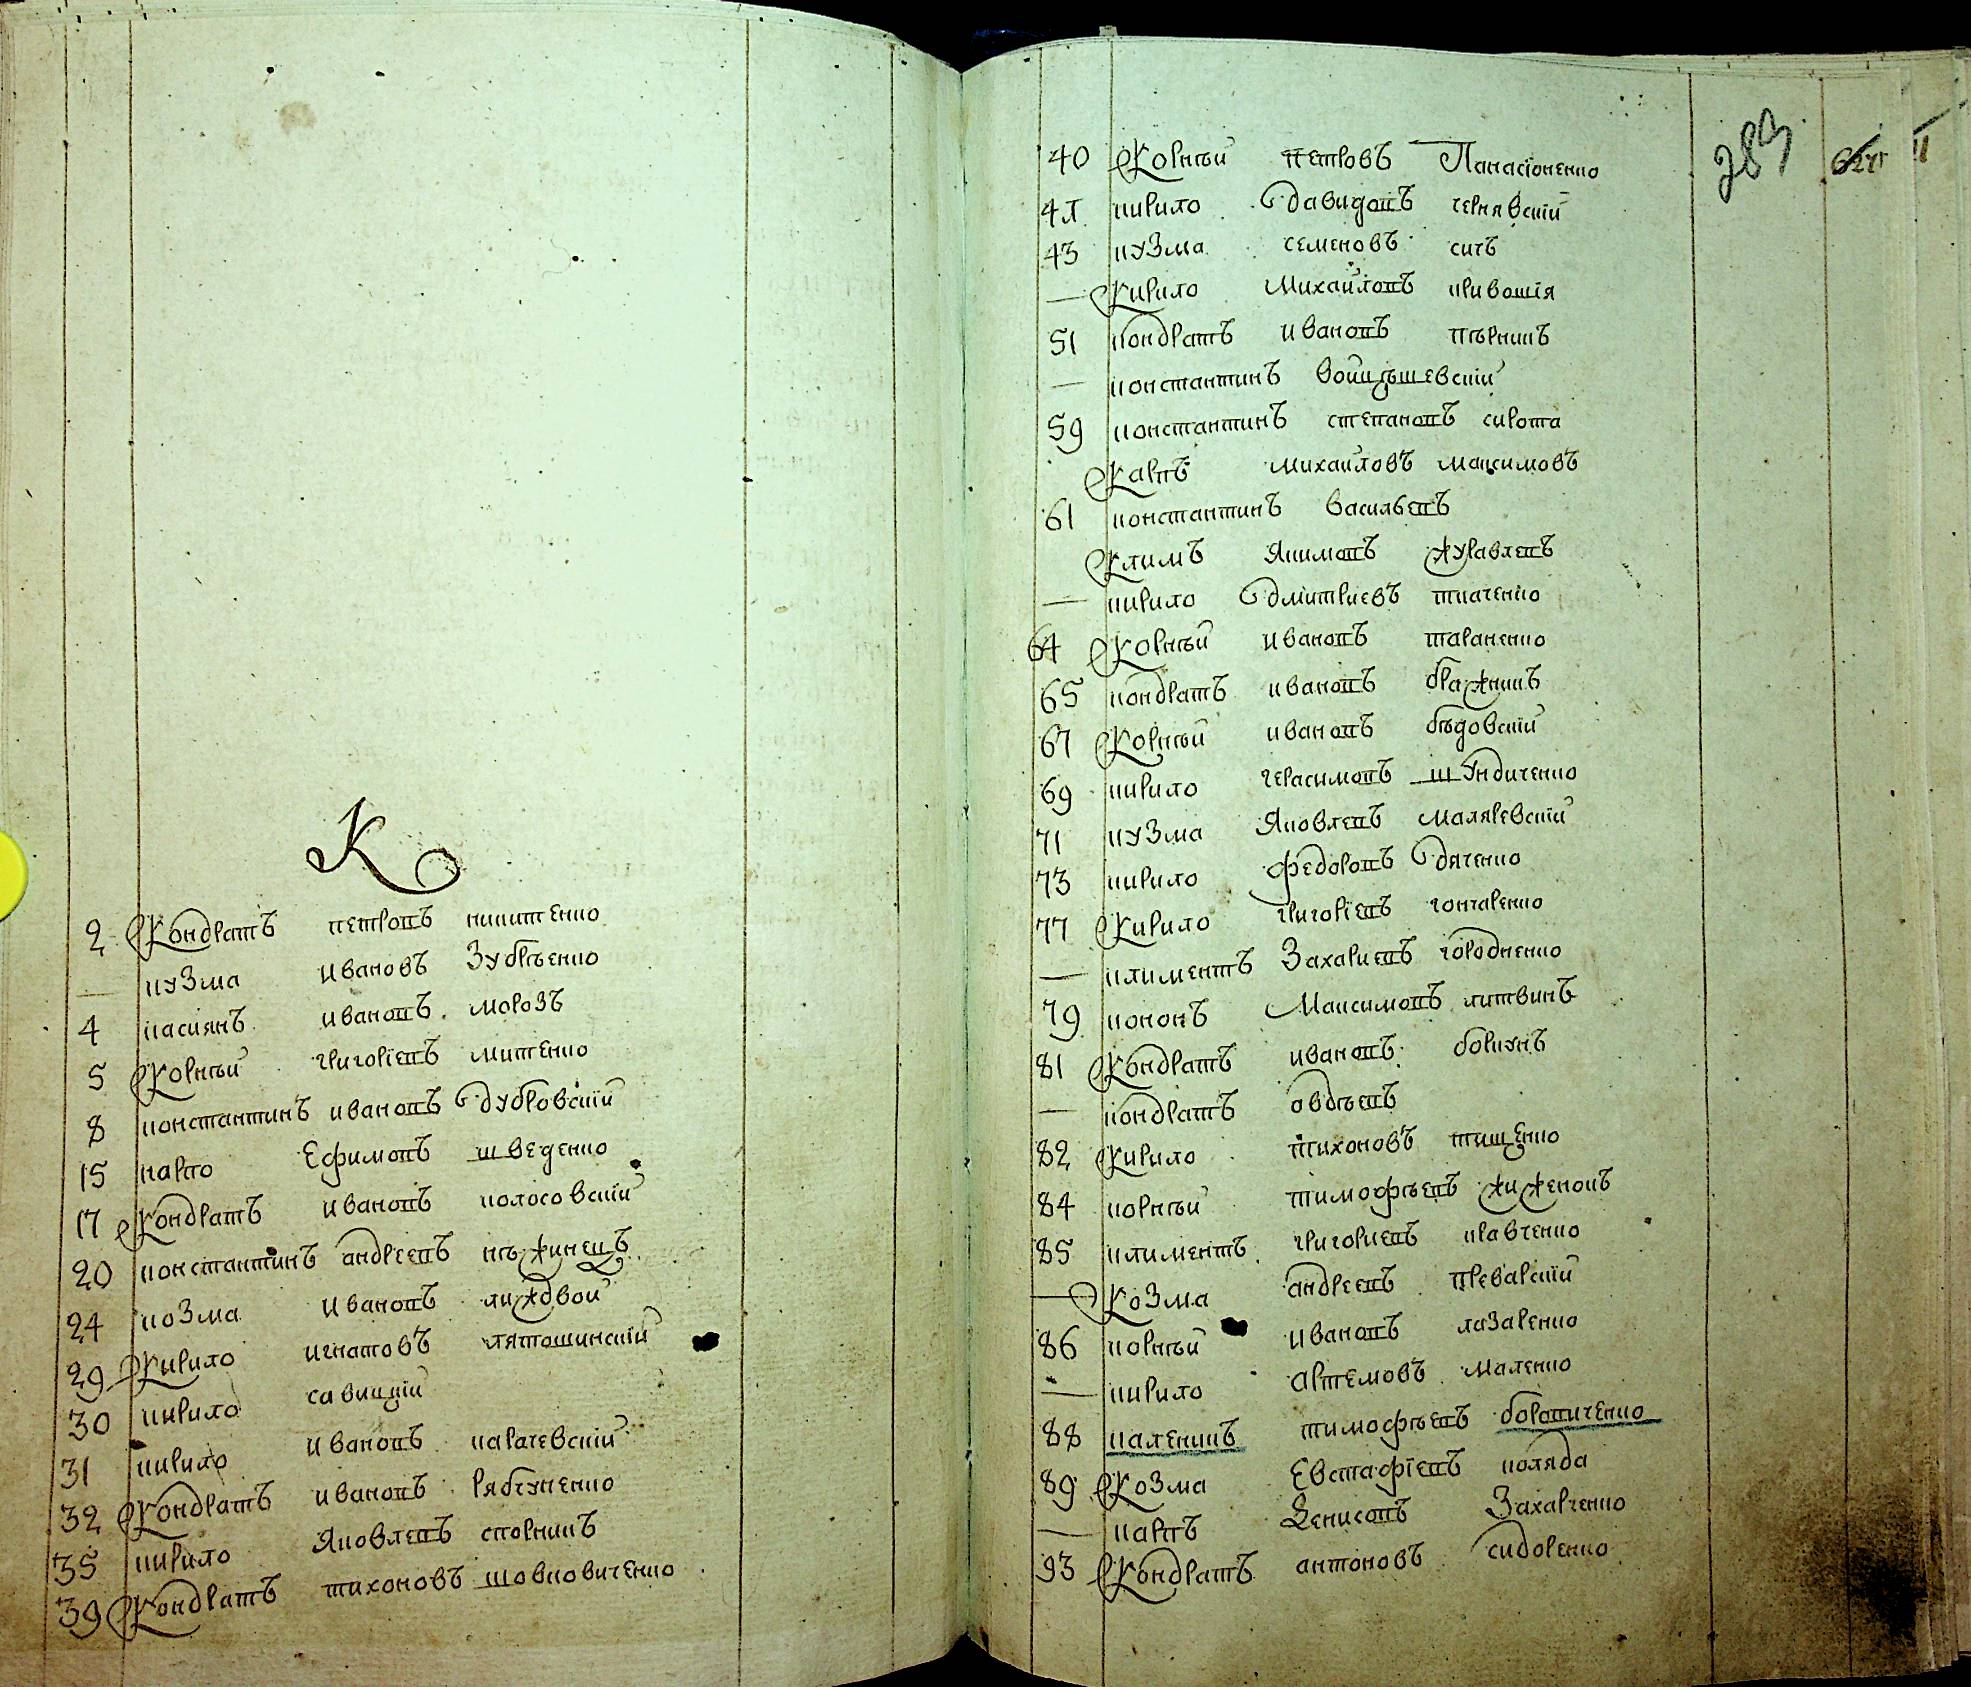 К
2 Кондратъ петровъ никитенко
— кузма ивановъ Зубрѣенко
4 касиянъ ивановъ морозъ
5 Корнѣй григоріевъ митенко
8 константинъ ивановъ дубровскій
15 карпо Ефимовъ шведенко
17 Кондратъ ивановъ колосовскій
20 константинъ андреевъ нѣжинецъ
24 козма ивановъ лиждвой
29 Кирило игнатовъ лятошинскій
30 кирило савицкій
31 кирило ивановъ карачевскій
32 Кондратъ ивановъ рябчуненко
35 кирило Яковлевъ спорникъ
39 Кондратъ тихоновъ шовковиченко
283
40 Корнѣй петровъ Панасіоненко
41 кирило давидовъ чернявскій
43 кузма семеновъ сичъ
— Кирило Михайловъ кривошія
51 кондратъ ивановъ пѣрникъ
— константинъ войцѣшевскій
59 константинъ степановъ сирота
Карпъ михайловъ максимовъ
61 константинъ васильевъ
Климъ Якимовъ журавлевъ
— кирило дмитриевъ ткаченко
64 Корнѣй ивановъ тараненко
65 кондратъ ивановъ бражникъ
67 Корнѣй ивановъ бѣдовскій
69 кирило герасимовъ шУндиченко
71 кузма Яковлевъ маляревскій
73 кирило федоровъ дяченко
77 Кирило григоріевъ гончаренко
— климентъ Захариевъ городненко
79 кононъ Максимовъ литвинъ
81 Кондратъ ивановъ боркунъ
— кондратъ овдѣевъ
82 Кирило тихоновъ тищенко
84 корнѣй тимофѣевъ жиженокъ
85 климентъ григориевъ кравченко
— Козма андреевъ преварскій
86 корнѣй ивановъ лазаренко
— кирило артемовъ маленко
88 каленикъ тимофѣевъ боровиченко
89 Козма Евстафіевъ коляда
— карпъ Денисовъ Захарченко
93 Кондратъ антоновъ сидоренко